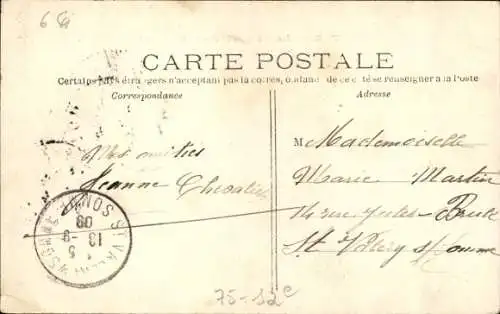 6 
CARTE POSTALE
Certains Pays étrangers n'acceptant pas la corres, ondance de ce côté se renseigner a la Poste
Correspondance
Adresse
Mes amitiés
Jeanne Chevalier
Mademoiselle
Marie Martin
14 rue Jules-
St Valery s/Somme
ST VALERY S SOMME
13 - 9
08
75-12e